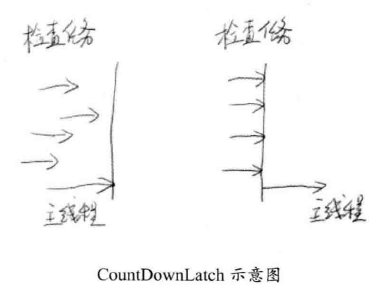 检查任务
检查任务
主线程
主线程
CountDownLatch 示意图